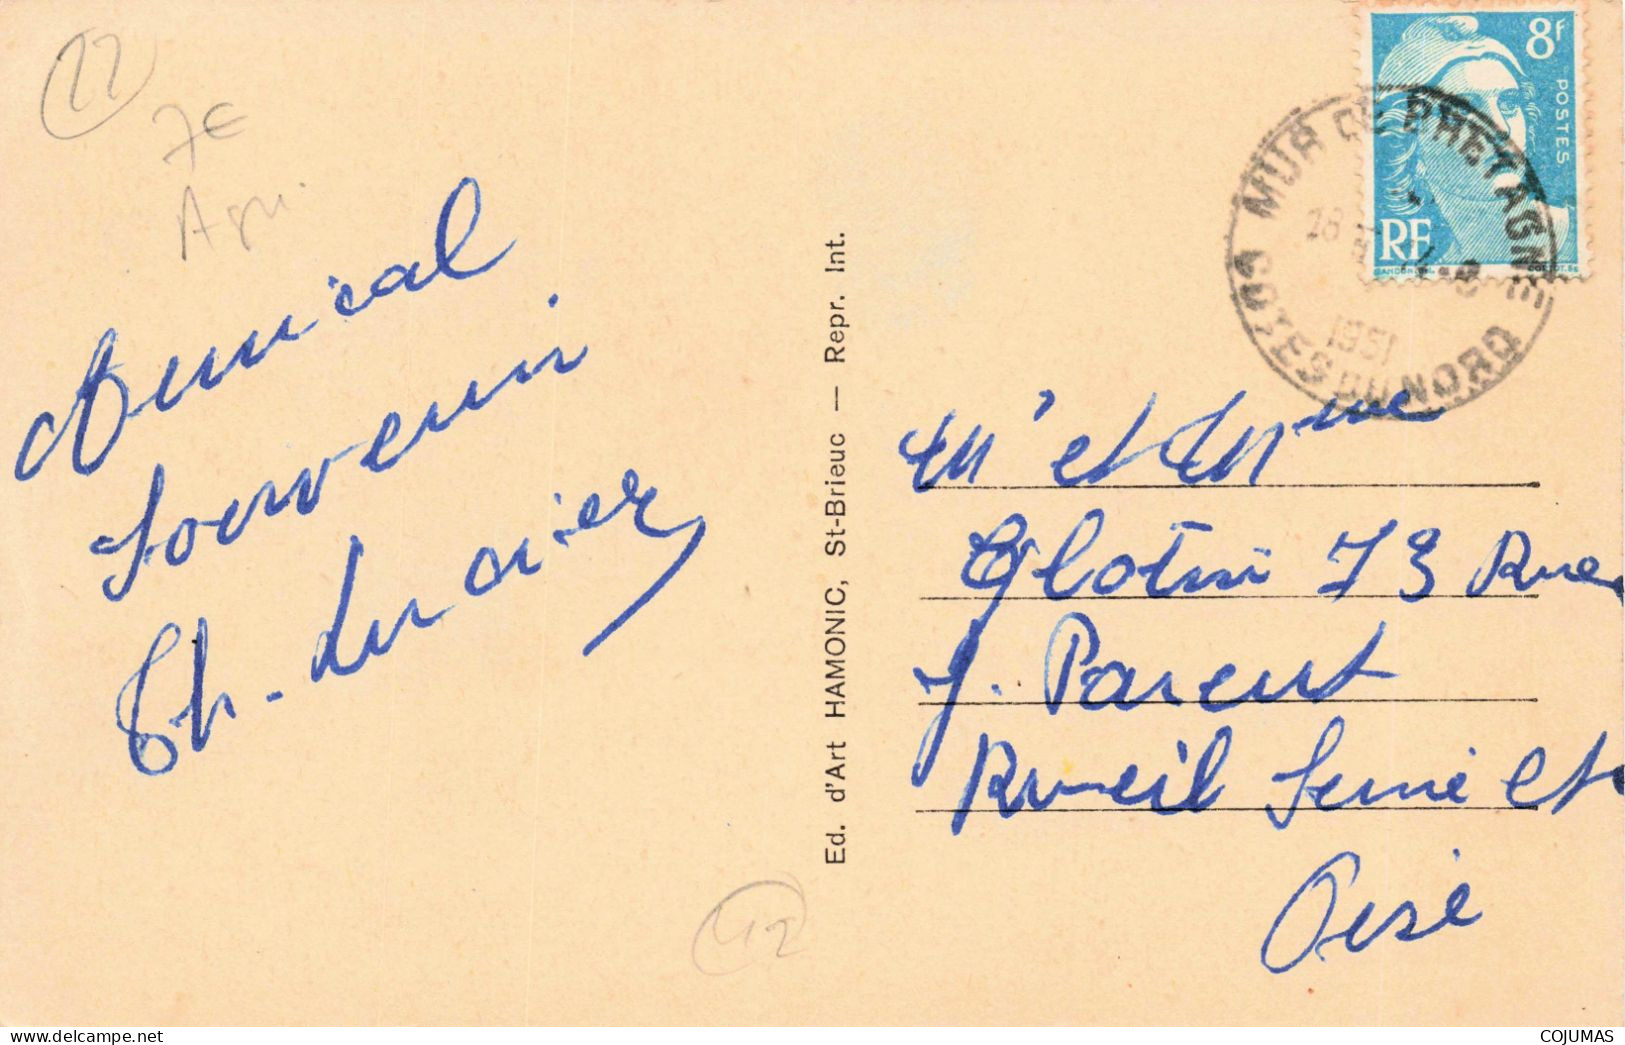 22
7€
Agri.
Amical
Souvenir
Ed. d'Art HAMONIC, St-Brieuc — Repr. Int.
8F
POSTES
RF
MUR DE BRETAGNE
18
1951
COTES DU NORD
Mr et Mme
Glotin 73 Rue
J. Parent
Rueil Seine et
Oise
42
www.delcampe.net
COJUMAS